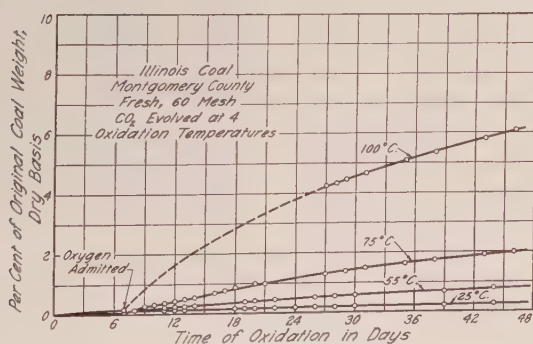 Per Cent of Original Coal Weight,
Dry Basis
10
8
6
4
2
0
Illinois Coal
Montgomery County
Fresh, 60 Mesh
CO₂ Evolved at 4
Oxidation Temperatures
Oxygen
Admitted
100°C.
75°C
55°C
25°C.
0 6 12 18 24 30 36 42 48
Time of Oxidation in Days